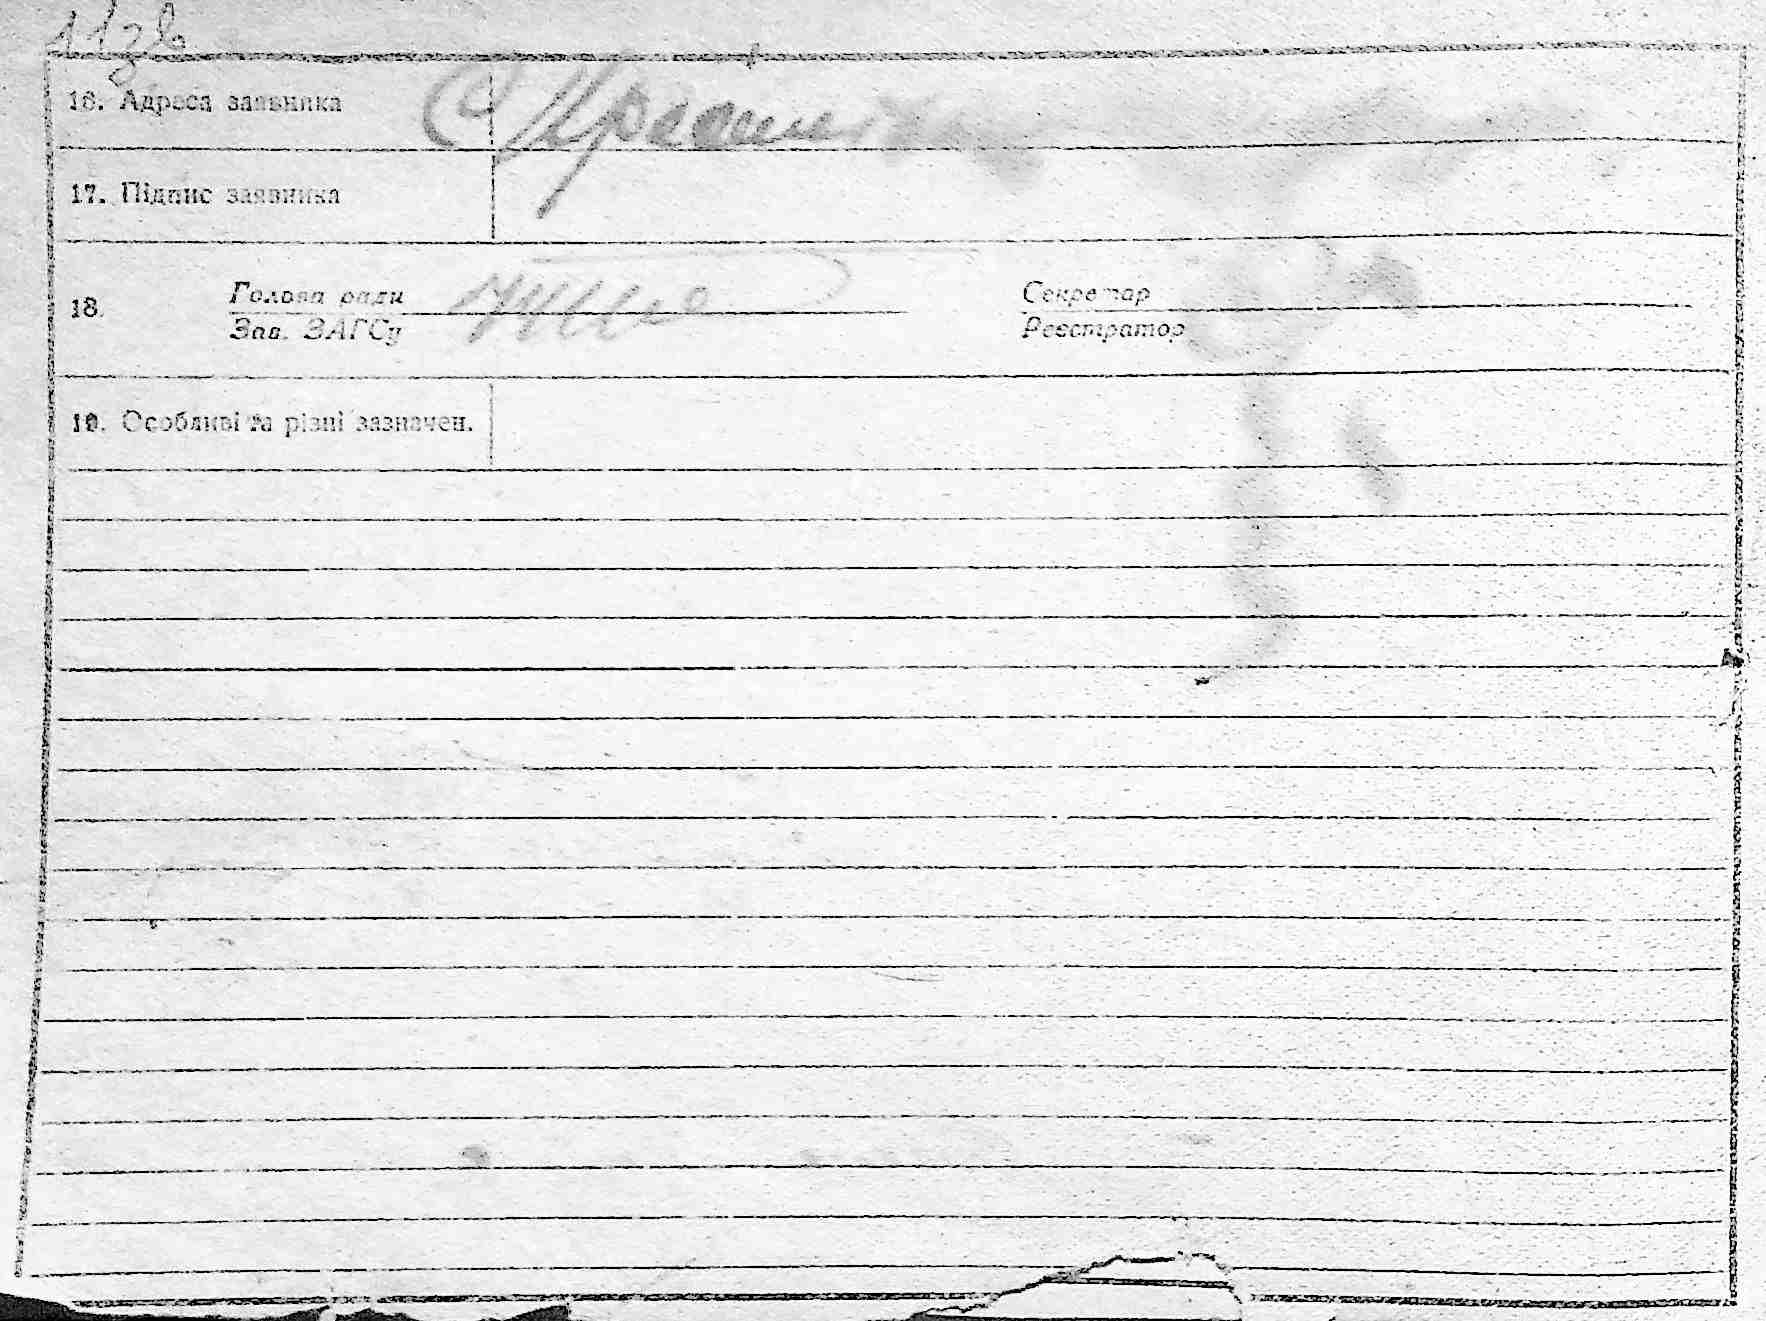 113в
16. Адреса заявника С
17. Підпис заявника
18. Голова ради Секретар
Зав. ЗАГСу Реєстратор
19. Особливі та різні зазначен.